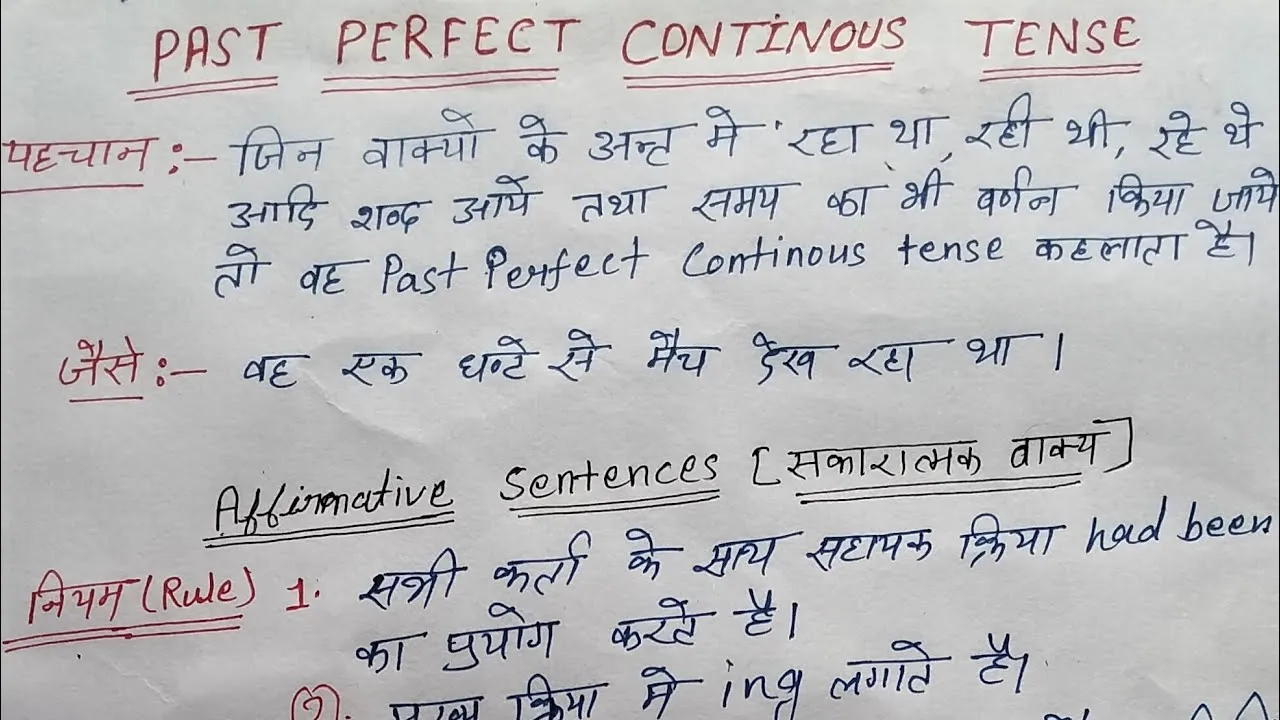 PAST PERFECT CONTINOUS TENSE
पहचान :- जिन वाक्यों के अन्त में रहा था, रही थी, रहे थे
आदि शब्द आयें तथा समय का भी वर्णन किया जाये
तो वह Past Perfect Continous tense कहलाता है।
जैसे :- वह एक घन्टे से मैच देख रहा था।
Affirmative Sentences [सकारात्मक वाक्य]
नियम (Rule) 1. सभी कर्ता के साथ सहायक क्रिया had been
का प्रयोग करते है।
2. मुख्य क्रिया में ing लगाते है।